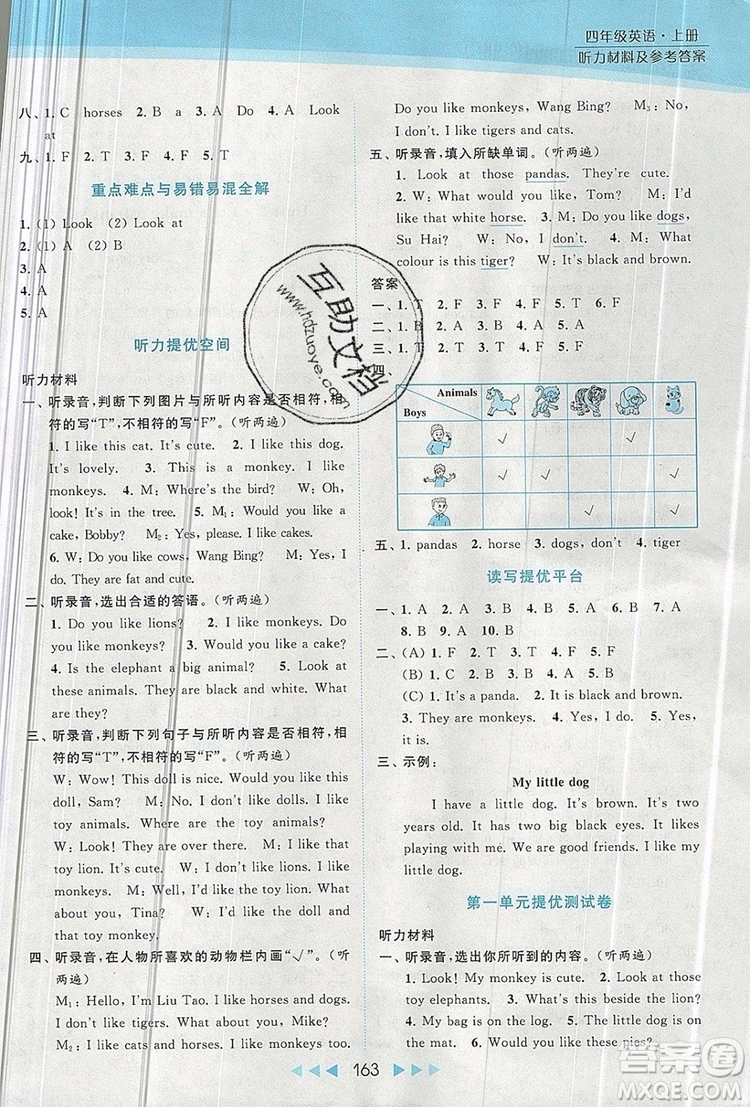 四年级英语·上册
听力材料及参考答案
八、1. C horses 2. B a 3. A Do 4. A Look
at
九、1. F 2. T 3. F 4. T 5. F
重点难点与易错易混全解
1. (1) Look (2) Look at
2. (1) A (2) B
3. A
4. A
5. A
听力提优空间
听力材料
一、听录音,判断下列图片与所听内容是否相符,相
符的写“T”,不相符的写“F”。(听两遍)
1. I like this cat. It's cute. 2. I like this dog.
It's lovely. 3. This is a monkey. I like
monkeys. 4. M: Where's the bird? W: Oh,
look! It's in the tree. 5. M₁: Would you like a
cake, Bobby? M₂: Yes, please. I like cakes.
6. W: Do you like cows, Wang Bing? M: Yes, I
do. They are fat and cute.
二、听录音,选出合适的答语。(听两遍)
1. Do you like lions? 2. Look! Do you like
monkeys? 3. Would you like a cake?
4. Is the elephant a big animal? 5. Look at
these animals. Would you like an elephant?
6. Look at the animals over there! They're cute.
What are they?
三、听录音,判断下列句子与所听内容是否相符,相
符的写“T”,不相符的写“F”。(听两遍)
W: Wow! This doll is nice. Would you like this
doll, Sam? M: No, I don't like dolls. I like the
toy animals. Where are the toy animals?
W: Look! They are over there. Would you like
the toy cat? It's cute. M: I don't like cats. I like that
toy lion. It's cute. M: Well, I'd like that toy lion. What
about you, Tina? W: I'd like the doll and that
toy monkey.
四、听录音,在人物所喜欢的动物栏内画“√”。(听
两遍)
M₁: Hello, I'm Liu Tao. I like horses and dogs.
They're cute. What about you, Mike?
M₂: I like cats and horses. I like monkeys too.
Do you like monkeys, Wang Bing? M₃: No, I
don't. I like tigers and cats.
五、听录音,填入所缺单词。(听两遍)
1. Look at those pandas. They're cute.
2. W: What would you like, Tom? M: I'd
like that white horse. 3. M: Do you like dogs,
Su Hai? W: No, I don't. 4. M: Look! What
colour is this tiger? W: It's black and brown.
答案
一、1. T 2. F 3. F 4. T 5. T 6. F
二、1. B 2. A 3. A 4. A 5. B 6. B
三、1. T 2. F 3. F 4. F 5. T
四、
Animals
Boys
√ √
√ √ √
√ √
五、1. pandas 2. horse 3. dogs, don't 4. tiger
读写提优平台
一、1. A 2. A 3. B 4. B 5. A 6. B 7. A
8. B 9. A 10. B
二、(A) 1. T 2. F 3. T 4. F
(B) 1. C 2. A 3. C 4. B
(C) 1. It's a panda. 2. It is black and brown.
3. They are monkeys. 4. No, it isn't. 5. Yes,
it is.
三、示例:
My little dog
I have a little dog. It's brown. It's two
years old. It has two big black eyes. It likes
playing with me. We are good friends. I like my
little dog.
第一单元提优测试卷
听力材料
一、听录音,选出你所听到的内容。
1. Look! My monkey is cute. 2. Look at those
toy elephants. 3. What's this beside the lion?
4. My bag is on the log. 5. This toy animal is on
the mat. 6. Would you like these pies?
163
互助文档
www.hdzuoye.com
答案圈
MXQE.COM